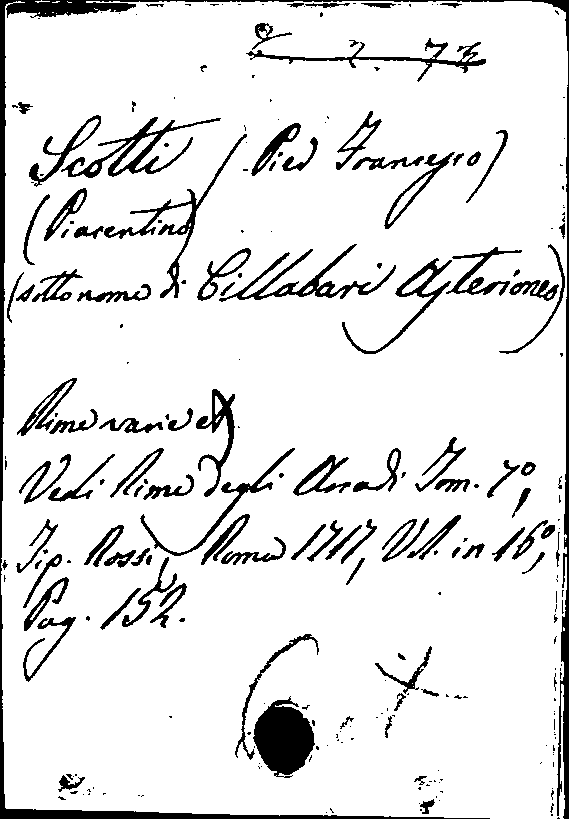 2 7 3
Scotti (Pier Francesco)
(Piacentino)
(sotto nome di Cillabari Asterioneo)
Rime varie
Vedi Rime degli Arcadi Tom. 7º,
Tip. Rossi, Roma 1717, Vol. in 16º,
Pag. 152.